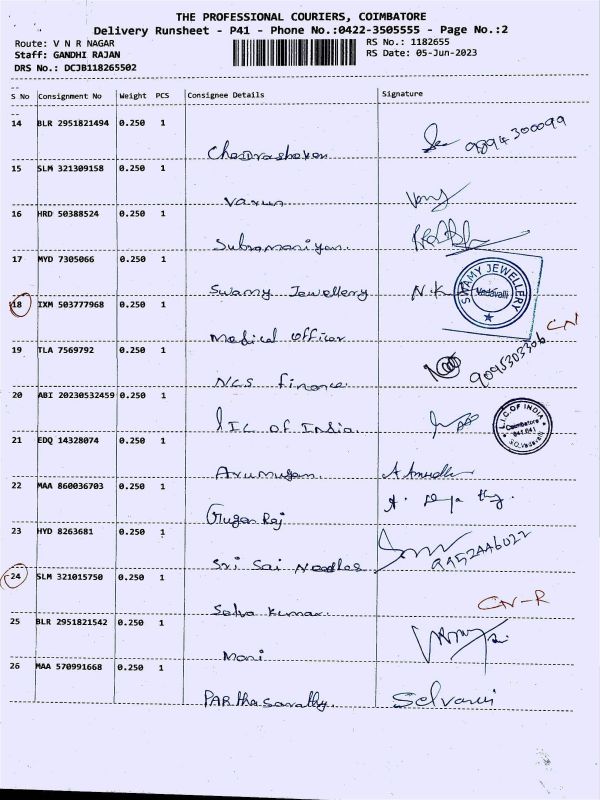 THE PROFESSIONAL COURIERS, COIMBATORE
Delivery Runsheet - P41 - Phone No.:0422-3505555 - Page No.:2
Route: V N R NAGAR
RS No.: 1182655
Staff: GANDHI RAJAN
RS Date: 05-Jun-2023
DRS No.: DCJB118265502
S No Consignment No Weight PCS Consignee Details Signature
14 BLR 2951821494 0.250 1
9894300099
Chandrashekar
15 SLM 321309158 0.250 1
Varun
16 HRD 50388524 0.250 1
Subramaniyan.
17 MYD 7305066 0.250 1
Swamy Jewellery N.K
SWAMY JEWELLERY
Vadavalli
18 IXM 503777968 0.250 1
CN
Medical officer
19 TLA 7569792 0.250 1
9095303306
NCS finance
20 ABI 20230532459 0.250 1
LIC of India
L.I.C. OF INDIA
Coimbatore
641 041
S.O. Vadavalli
21 EDQ 14328074 0.250 1
Arumugam
22 MAA 860036703 0.250 1
Gugan Raj
23 HYD 8263681 0.250 1
Sri Sai Needles
24 SLM 321015750 0.250 1
CN-R
Selva Kumar
25 BLR 2951821542 0.250 1
Mani
26 MAA 570991668 0.250 1
PARthasarathy. Selvarni